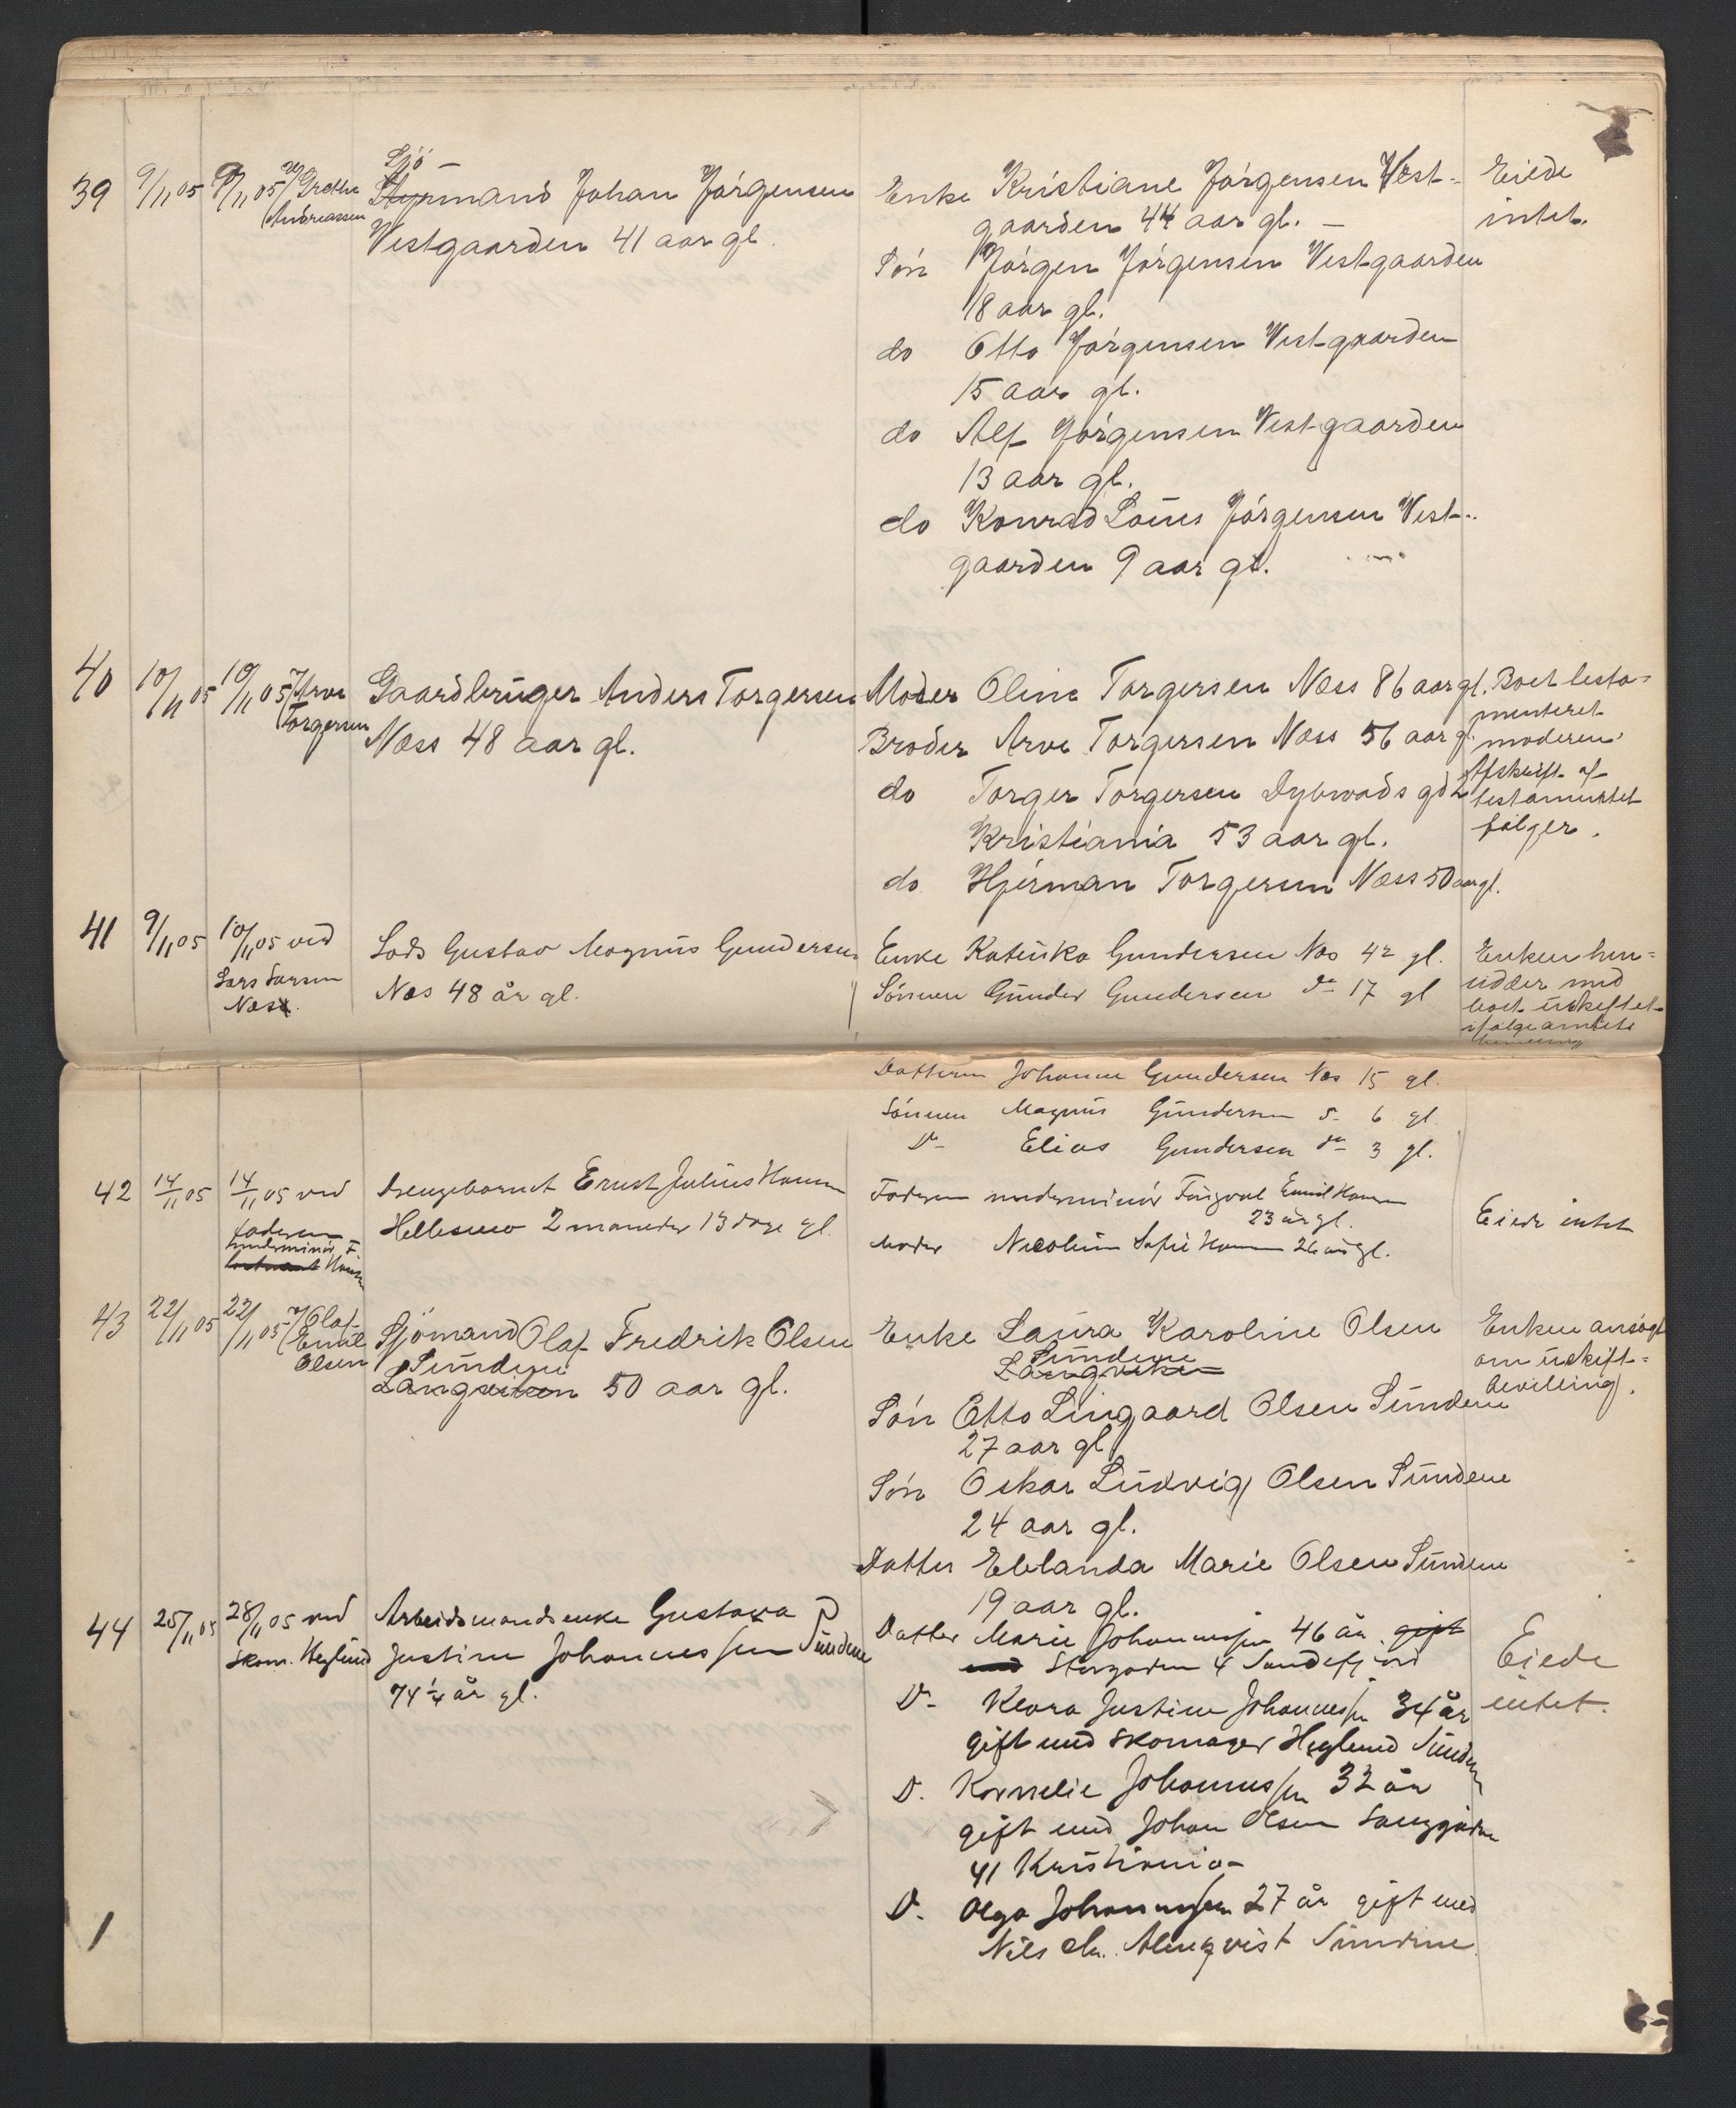 39 9/11 05 9/11 05 v/ Grethe Andreassen
Sjö-
Styrmand Johan Jörgensen
Vestgaarden 41 aar gl.
Enke Kristiane Jörgensen Vest-
gaarden 44 aar gl. —
Sön Jörgen Jörgensen Vestgaarden
18 aar gl.
do Otto Jörgensen Vestgaarden
15 aar gl.
do Alf Jörgensen Vestgaarden
13 aar gl.
do Konrad Louis Jörgensen Vest-
gaarden 9 aar gl.
Eiede
intet.
40 10/11 05 10/11 05 v/ Arve Torgersen
Gaardbruger Anders Torgersen
Næss 48 aar gl.
Moder Oline Torgersen Næss 86 aar gl.
Broder Arve Torgersen Næss 56 aar gl.
do Torger Torgersen Dybwads gd 2
Kristiania 53 aar gl.
do Hjerman Torgersen Næss 50 aar gl.
Boet testa=
menteret
moderen.
Afskrift af
testamentet
fölger.
41 9/11 05 10/11 05 ved
Lars Larsen
Næs.
Lods Gustav Magnus Gundersen
Næs 48 år gl.
Enke Katinka Gundersen Næs 42 gl.
Sønnen Gunder Gundersen do 17 gl
Enken hen=
sidder med
boet uskiftet
ifölge amtets
Datteren Johanne Gundersen Næs 15 gl.
Sønnen Magnus Gundersen do 6 gl.
Do Elias Gundersen do 3 gl.
42 14/11 05 14/11 05 ved
faderen
underminör F.
Hansen
Drengebarnet Ernst Julius Hansen
Hellesund 2 maaneder 13 dage gl.
Faderen underminör Emil Hansen
23 år gl.
Moder Nicoline Sofie Hansen 26 år gl.
Eiede intet
43 22/11 05 22/11 05 v/ Olaf
Emil
Olsen
Sjömand Olaf Fredrik Olsen
Sundene
Langviken 50 aar gl.
Enke Laura Karoline Olsen
Sundene
Langviken
Sön Otto Lingaard Olsen Sundene
27 aar gl
Sön Oskar Ludvig Olsen Sundene
24 aar gl.
Datter Eblanda Marie Olsen Sundene
19 aar gl.
Enken ansögt
om uskift=
bevilling.
44 25/11 05 28/11 05 ved
Skom. Heglund
Arbeidsmandsenke Gustava
Justine Johannessen Sundene
74 1/4 år gl.
Datter Marie Johannessen 46 år gift
med Storgaden 4 Sandefjord
D. Klara Justine Johannessen 34 år
gift med skomager Heglund Sundene
D. Kornelie Johannessen 32 år
gift med Johan Olsen Langgaden
41 Kristiania
D. Olga Johannessen 27 år gift med
Nils Chr. Almqvist Sundene
Eiede
intet.